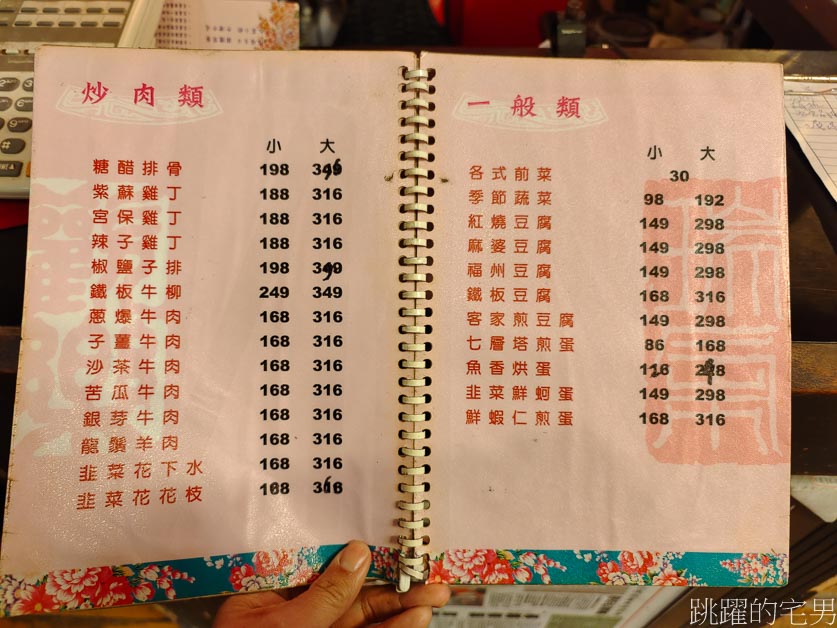 炒肉類
小 大
糖醋排骨 198
紫蘇雞丁 188 316
宮保雞丁 188 316
辣子雞丁 188 316
椒鹽子排 198
鐵板牛柳 249 349
蔥爆牛肉 168 316
子薑牛肉 168 316
沙茶牛肉 168 316
苦瓜牛肉 168 316
銀芽牛肉 168 316
龍鬚羊肉 168 316
韭菜花下水 168 316
韭菜花花枝
一般類
小 大
各式前菜 30
季節蔬菜 98 192
紅燒豆腐 149 298
麻婆豆腐 149 298
福州豆腐 149 298
鐵板豆腐 168 316
客家煎豆腐 149 298
七層塔煎蛋 86 168
魚香烘蛋
韭菜鮮蚵蛋 149 298
鮮蝦仁煎蛋 168 316
跳躍的宅男